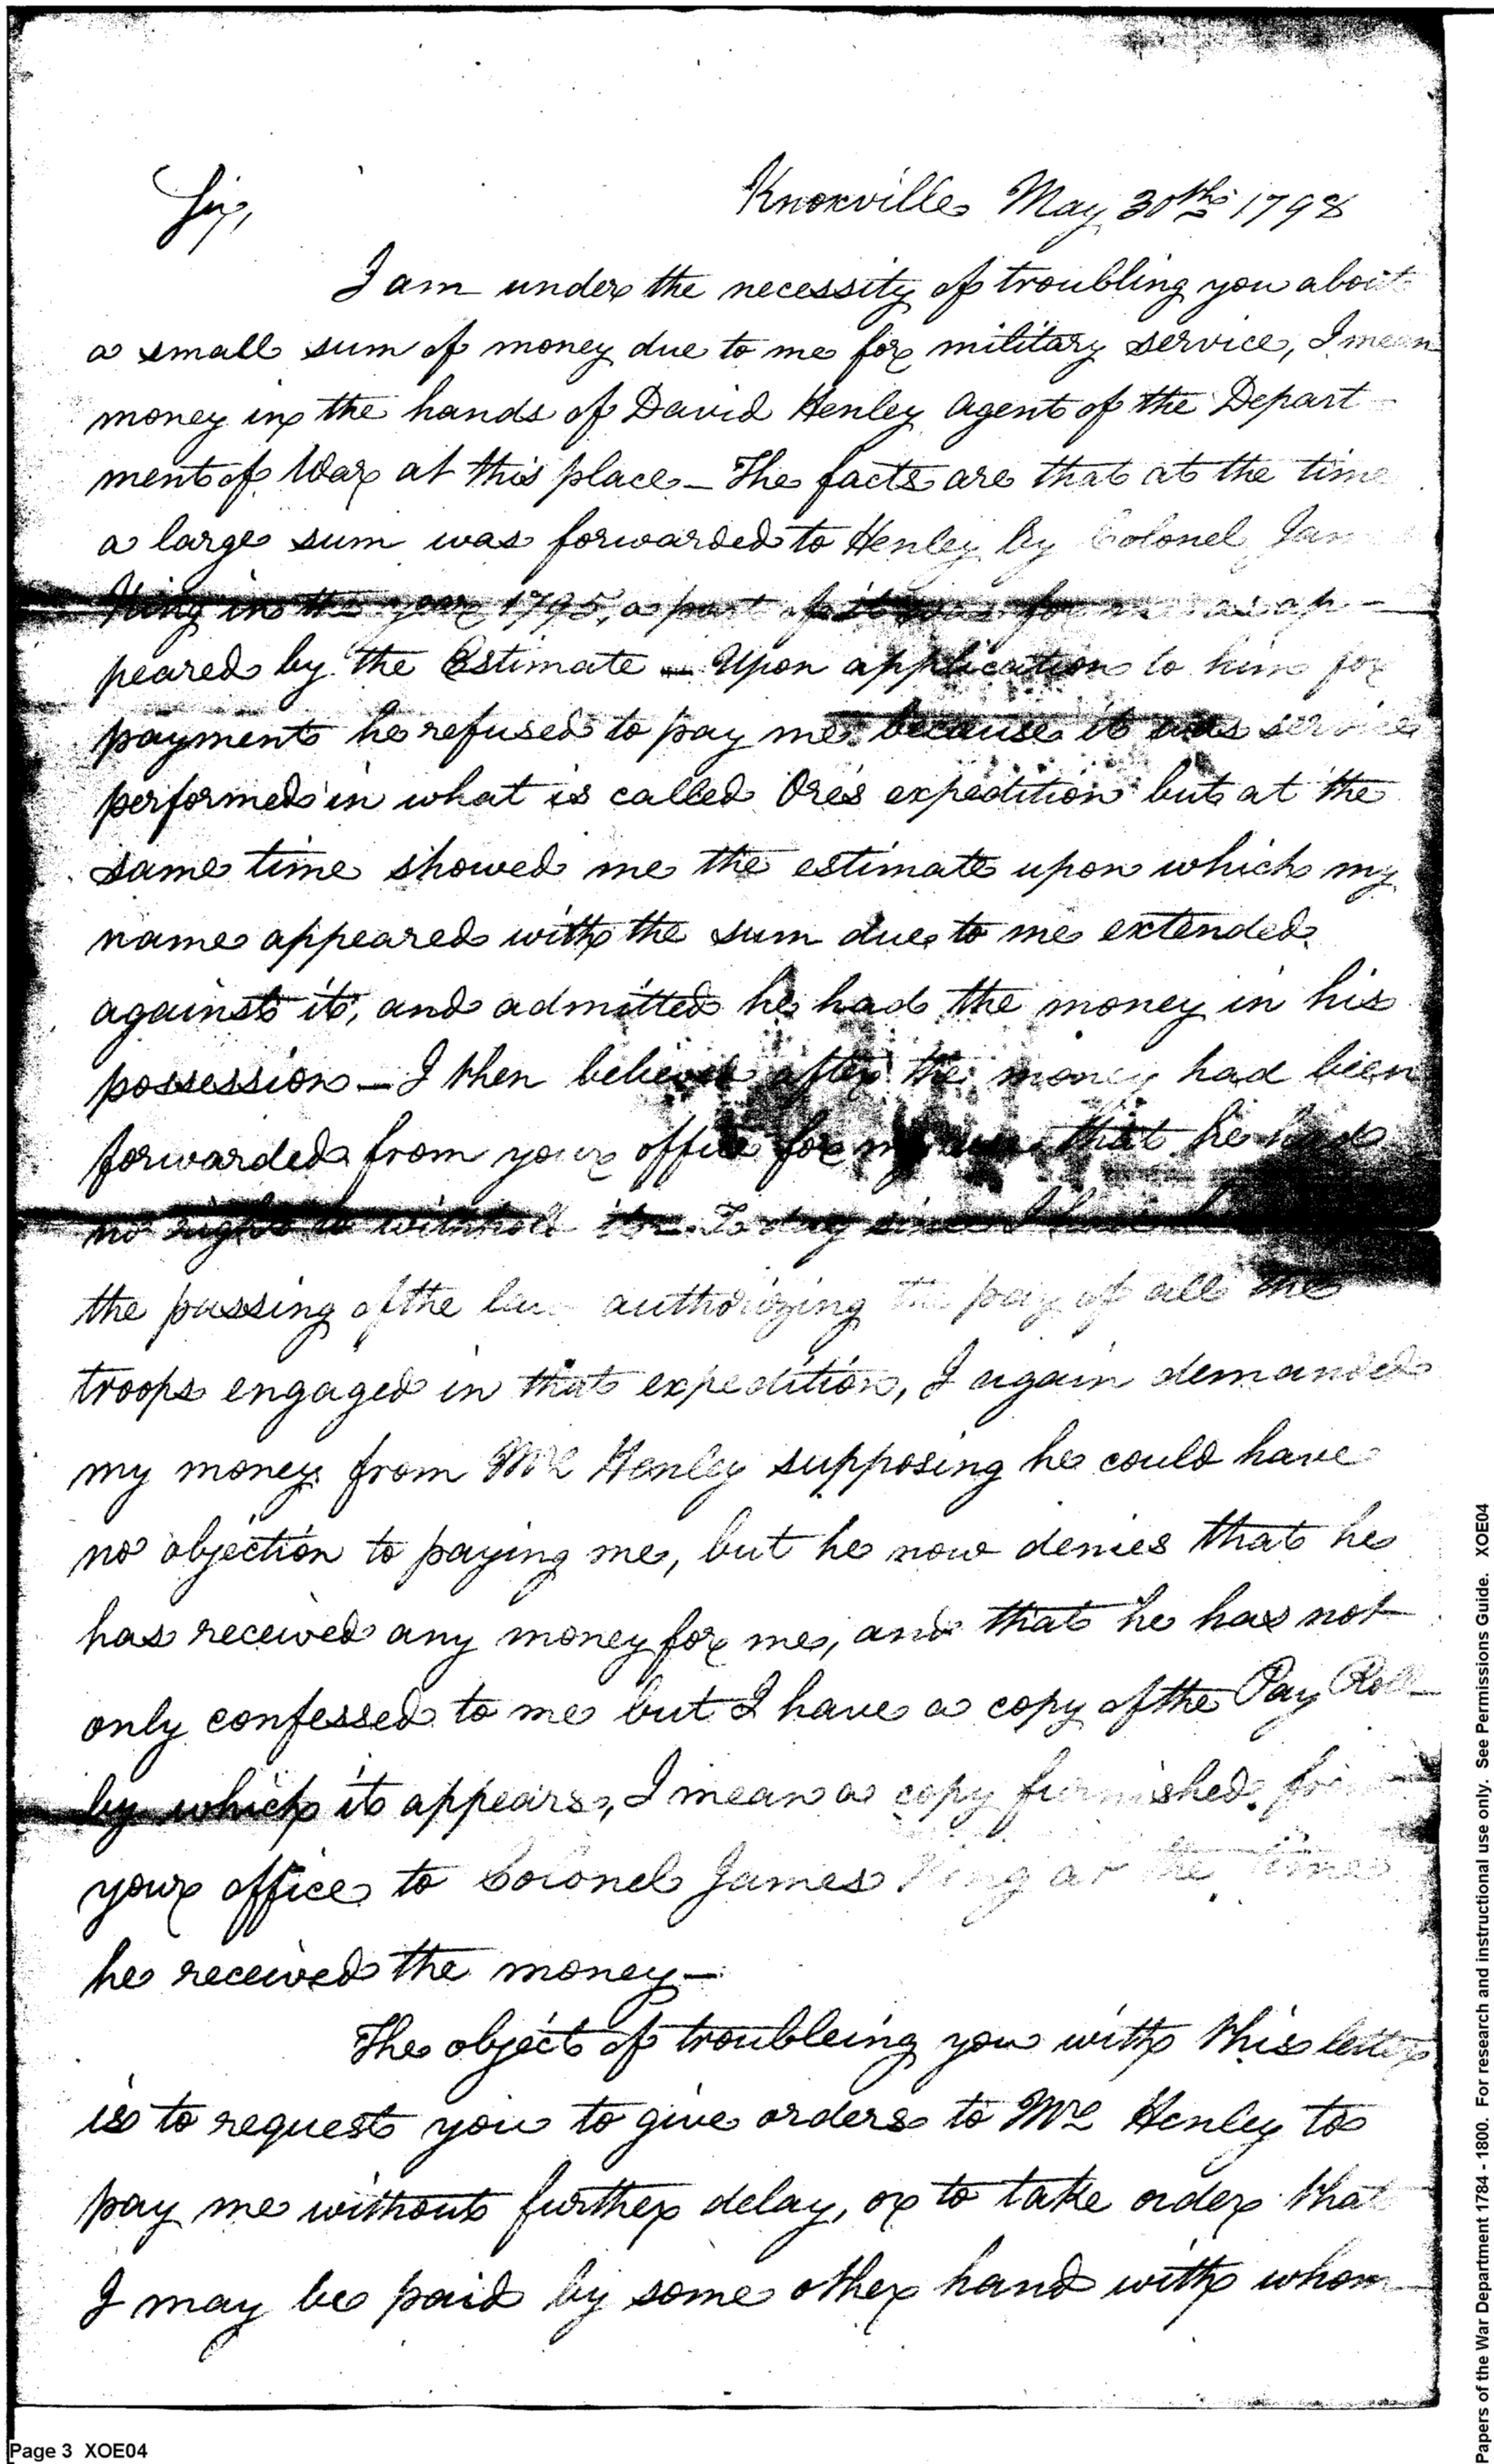 Sir,
Knoxville May 30th 1798
I am under the necessity of troubling you about
a small sum of money due to me for military service, I mean
money in the hands of David Henley Agent of the Depart-
ment of War at this place – The facts are that at the time
a large sum was forwarded to Henley by Colonel James
King in the year 1795, a part of it was for me as ap-
peared by the Estimate – Upon application to him for
payment he refused to pay me because it was service
performed in what is called Ore's expedition but at the
same time showed me the estimate upon which my
name appeared with the sum due to me extended
against it, and admitted he had the money in his
possession – I then believed after the money had been
forwarded from your office for my that he had
no right to withhold it – To day since I have
the passing of the law authorizing the pay of all the
troops engaged in that expedition, I again demanded
my money from Mr Henley supposing he could have
no objection to paying me, but he now denies that he
has received any money for me, and that he has not
only confessed to me but I have a copy of the Pay Roll
by which it appears, I mean a copy furnished from
your office to Colonel James King at the time
he received the money –
The object of troubleing you with this letter
is to request you to give orders to Mr Henley to
pay me without further delay, or to take order that
I may be paid by some other hand with whom
Page 3 XOE04
Papers of the War Department 1784 - 1800. For research and instructional use only. See Permissions Guide. XOE04